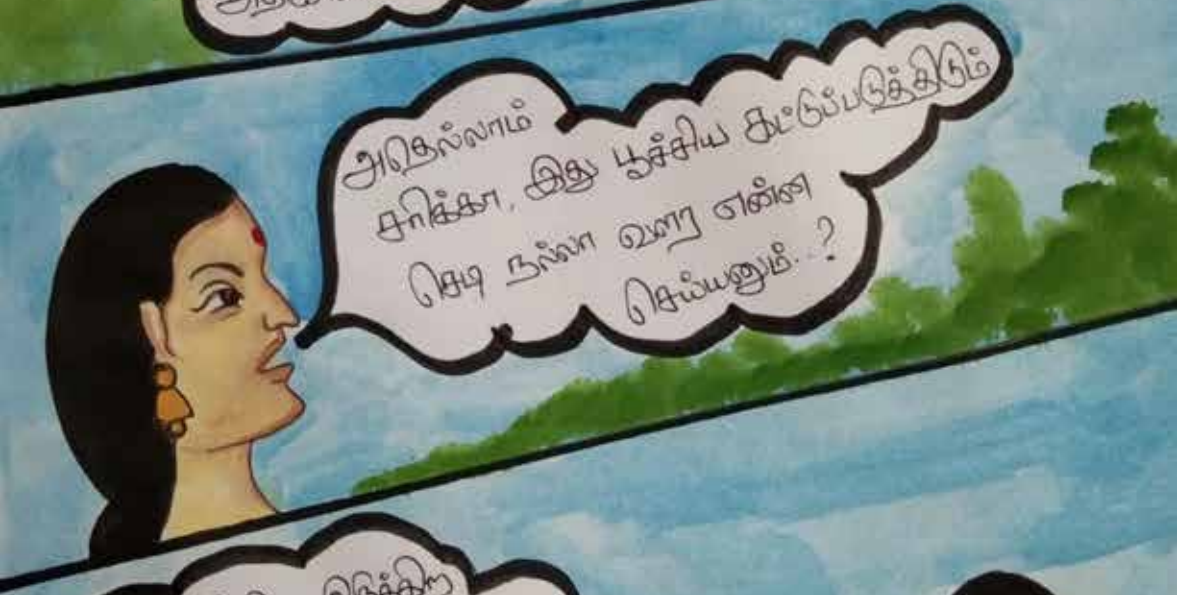 அதெல்லாம்
சரிக்கா, இது பூச்சிய கட்டுப்படுத்திடும்
செடி நல்லா வளர என்ன
செய்யனும்..?
இருக்கிற